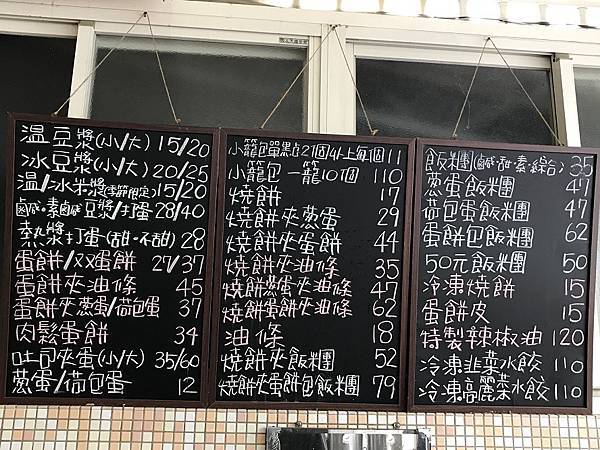 溫豆漿(小/大) 15/20
冰豆漿(小/大) 20/25
溫/冰米漿(季節限定) 15/20
鹹・素鹹豆漿/打蛋 28/40
熱漿打蛋(甜・不甜) 28
蛋餅/双蛋餅 27/37
蛋餅夾油條 45
蛋餅夾蔥蛋/荷包蛋 37
肉鬆蛋餅 34
吐司夾蛋(小/大) 35/60
蔥蛋/荷包蛋 12
小籠包單點2個以上每個11
小籠包一籠10個 110
燒餅 17
燒餅夾蔥蛋 29
燒餅夾蛋餅 44
燒餅夾油條 35
燒餅蔥蛋夾油條 47
燒餅蛋餅夾油條 62
油條 18
燒餅夾飯糰 52
燒餅夾蛋餅包飯糰 79
飯糰(鹹・甜・素・綜合) 35
蔥蛋飯糰 47
荷包蛋飯糰 47
蛋餅包飯糰 62
50元飯糰 50
冷凍燒餅 15
蛋餅皮 15
特製辣椒油 120
冷凍韭菜水餃 110
冷凍高麗菜水餃 110